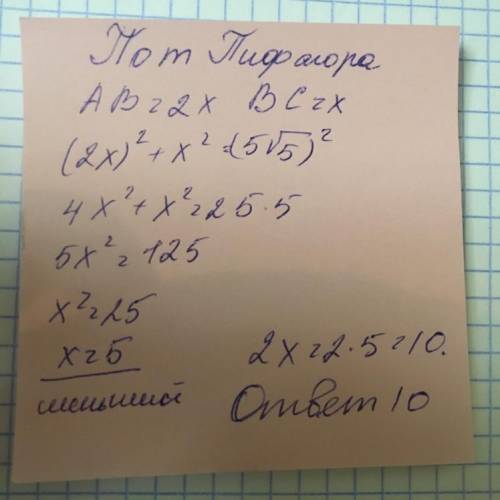 По т Пифагора
AB=2x BC=x
(2x)²+x²=(5√5)²
4x²+x²=25·5
5x²=125
x²=25
x=5
меньший
2x=2·5=10.
Ответ 10